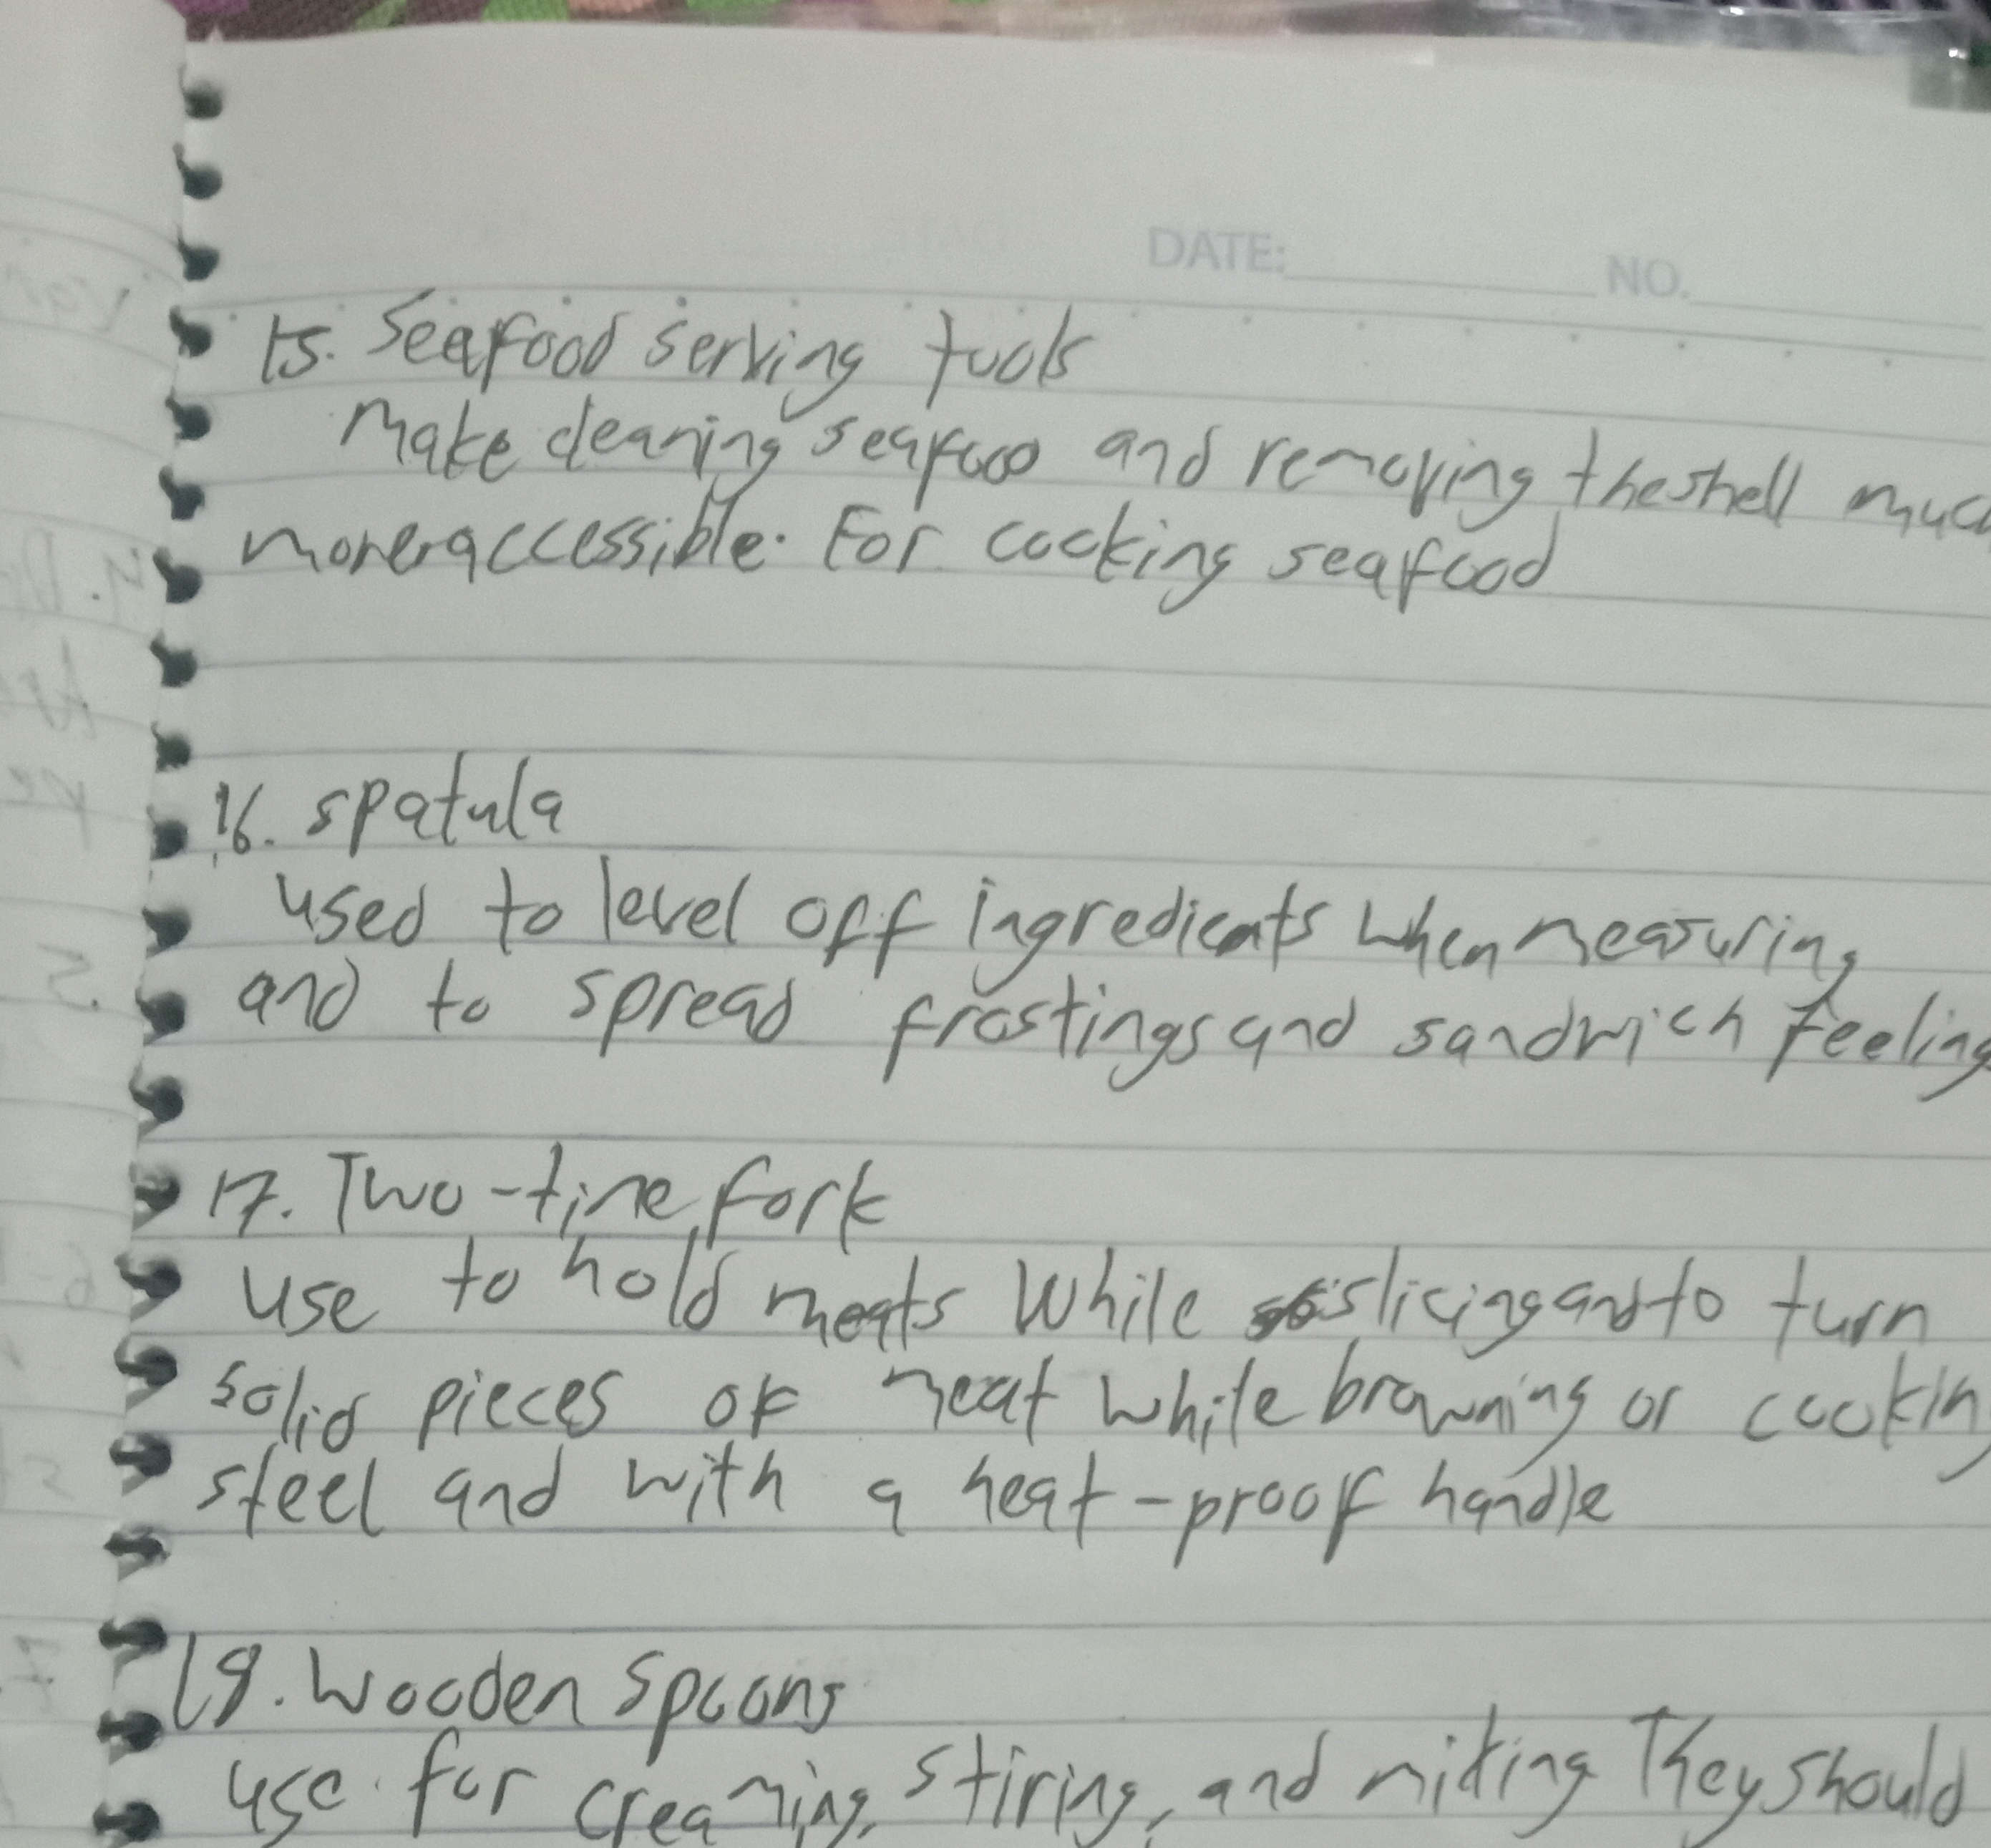 DATE: NO.
15. Seafood serving tools
Make cleaning seafood and removing the shell much
more accessible. For cooking seafood
16. spatula
used to level off ingredients when measuring
and to spread frostings and sandwich feeling
17. Two-tine fork
use to hold meats while slicing and to turn
solid pieces of meat while browning or cookin
steel and with a heat-proof handle
18. Wooden spoons
use for creaming, stiring, and mixing They should